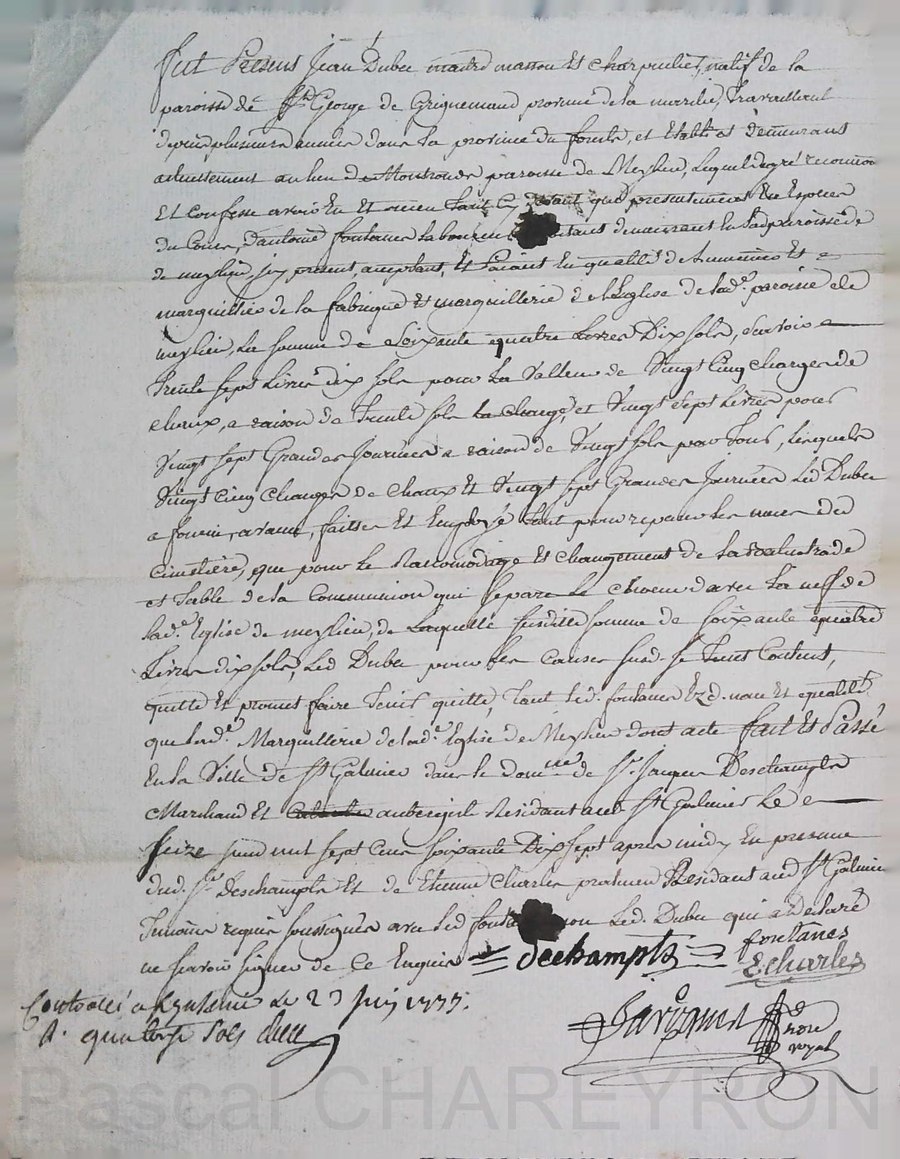 fut Présens Jean Dubu maitre masson et charpentier, natif de la
paroisse de St George de province de la marche, travaillant
depuis plusieurs année dans la province du forests, et Estably et demeurans
actuellement au lieu de Montrond paroisse de Meylieu, lequel de gré reconnoit
Et confesse avoir Eu et receu tant cy devant que presentement En Especes
du Cours, d'antoine fontanes Laboureur demeurant En lad. paroisse de
de meylieu, icy present, acceptant, et paiant En qualité de Luminier Et
marguillier de la fabrique et marguillerie de l'Eglise de lad.e paroisse de
meylieu, La somme de Soixante quatre Livres Dix sols, sçavoir
Trente sept Livres dix sols pour La Valleur de Vingt Cinq Charges de
chaux, a raison de Trente sols La Charge, et Vingt sept Livres pour
Vingt sept Grandes Journées a raison de Vingt sols par Jour, Lesquels
Vingt Cinq Charges de Chaux Et Vingt sept Grandes Journées Led Dubu
a fourni, faittes Et Employé tant pour reparer Les murs du
Cimetière, que pour le Racomodage Et Changement de La Balustrade
et Table de la Communion qui separe Le Choeur d'avec La neff de
lad.e Eglise de meylieu, de Laquelle susditte somme de soixante quatre
Livres dix sols, Led Dubu pour les causes susd. se Tient Contant,
quitte et promet faire Tenir quitte, Tant led. fontanes Ezd. nom Et qualité,
que lad.e Marguillerie de lad.e Eglise de Meylieu dont acte fait Et Passé
En la Ville de St Galmier dans le domicile de Sr Jacques Deschampts
Marchand Et aubergiste Residant aud St Galmier Le
seize juin mil sept Cens soixante Dix sept apres midy En presence
dud. Sr Deschampts Et de Etienne Charles praticien Residant aud St Galmier
Temoins requis soussignés avec led non Led. Dubu qui a declaré
ne sçavoir signer de Ce Enquis
dechampts
fontanes
E charles
Controllé a le 23 juin 1777.
R. quatorze sols
nore
royal
Pascal CHAREYRON